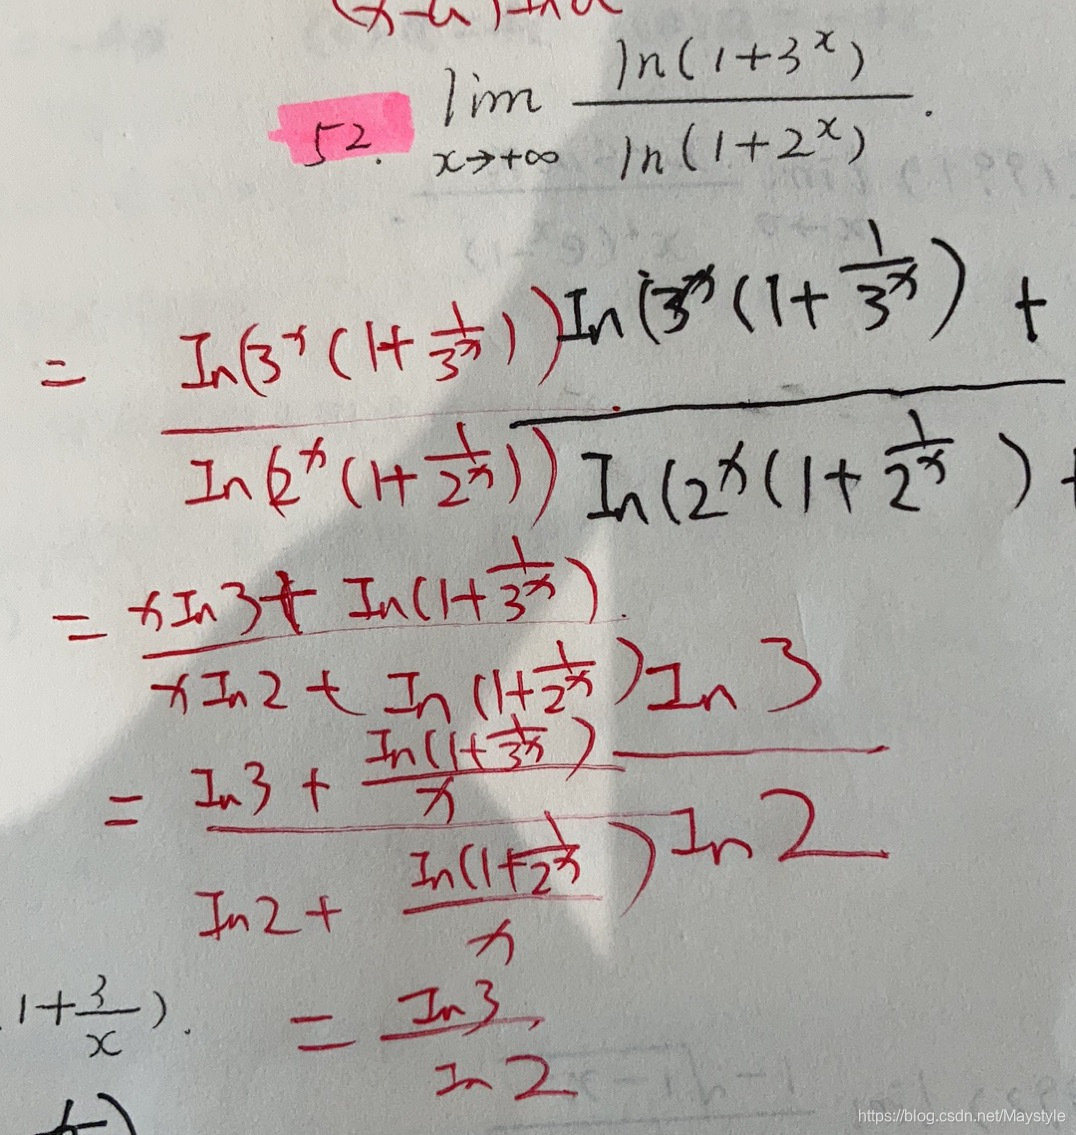 52. lim x→+∞ ln(1+3^x) / ln(1+2^x) .
= In(3^x(1+1/3^x)) / In(2^x(1+1/2^x)) In(3^x(1+1/3^x) + / In(2^x(1+1/2^x) +
= xIn3 + In(1+1/3^x) / xIn2 + In(1+1/2^x) In3 / In2
= In3 + In(1+1/3^x)/x / In2 + In(1+1/2^x)/x )
1+3/x).
= In3 / In2
https://blog.csdn.net/Maystyle